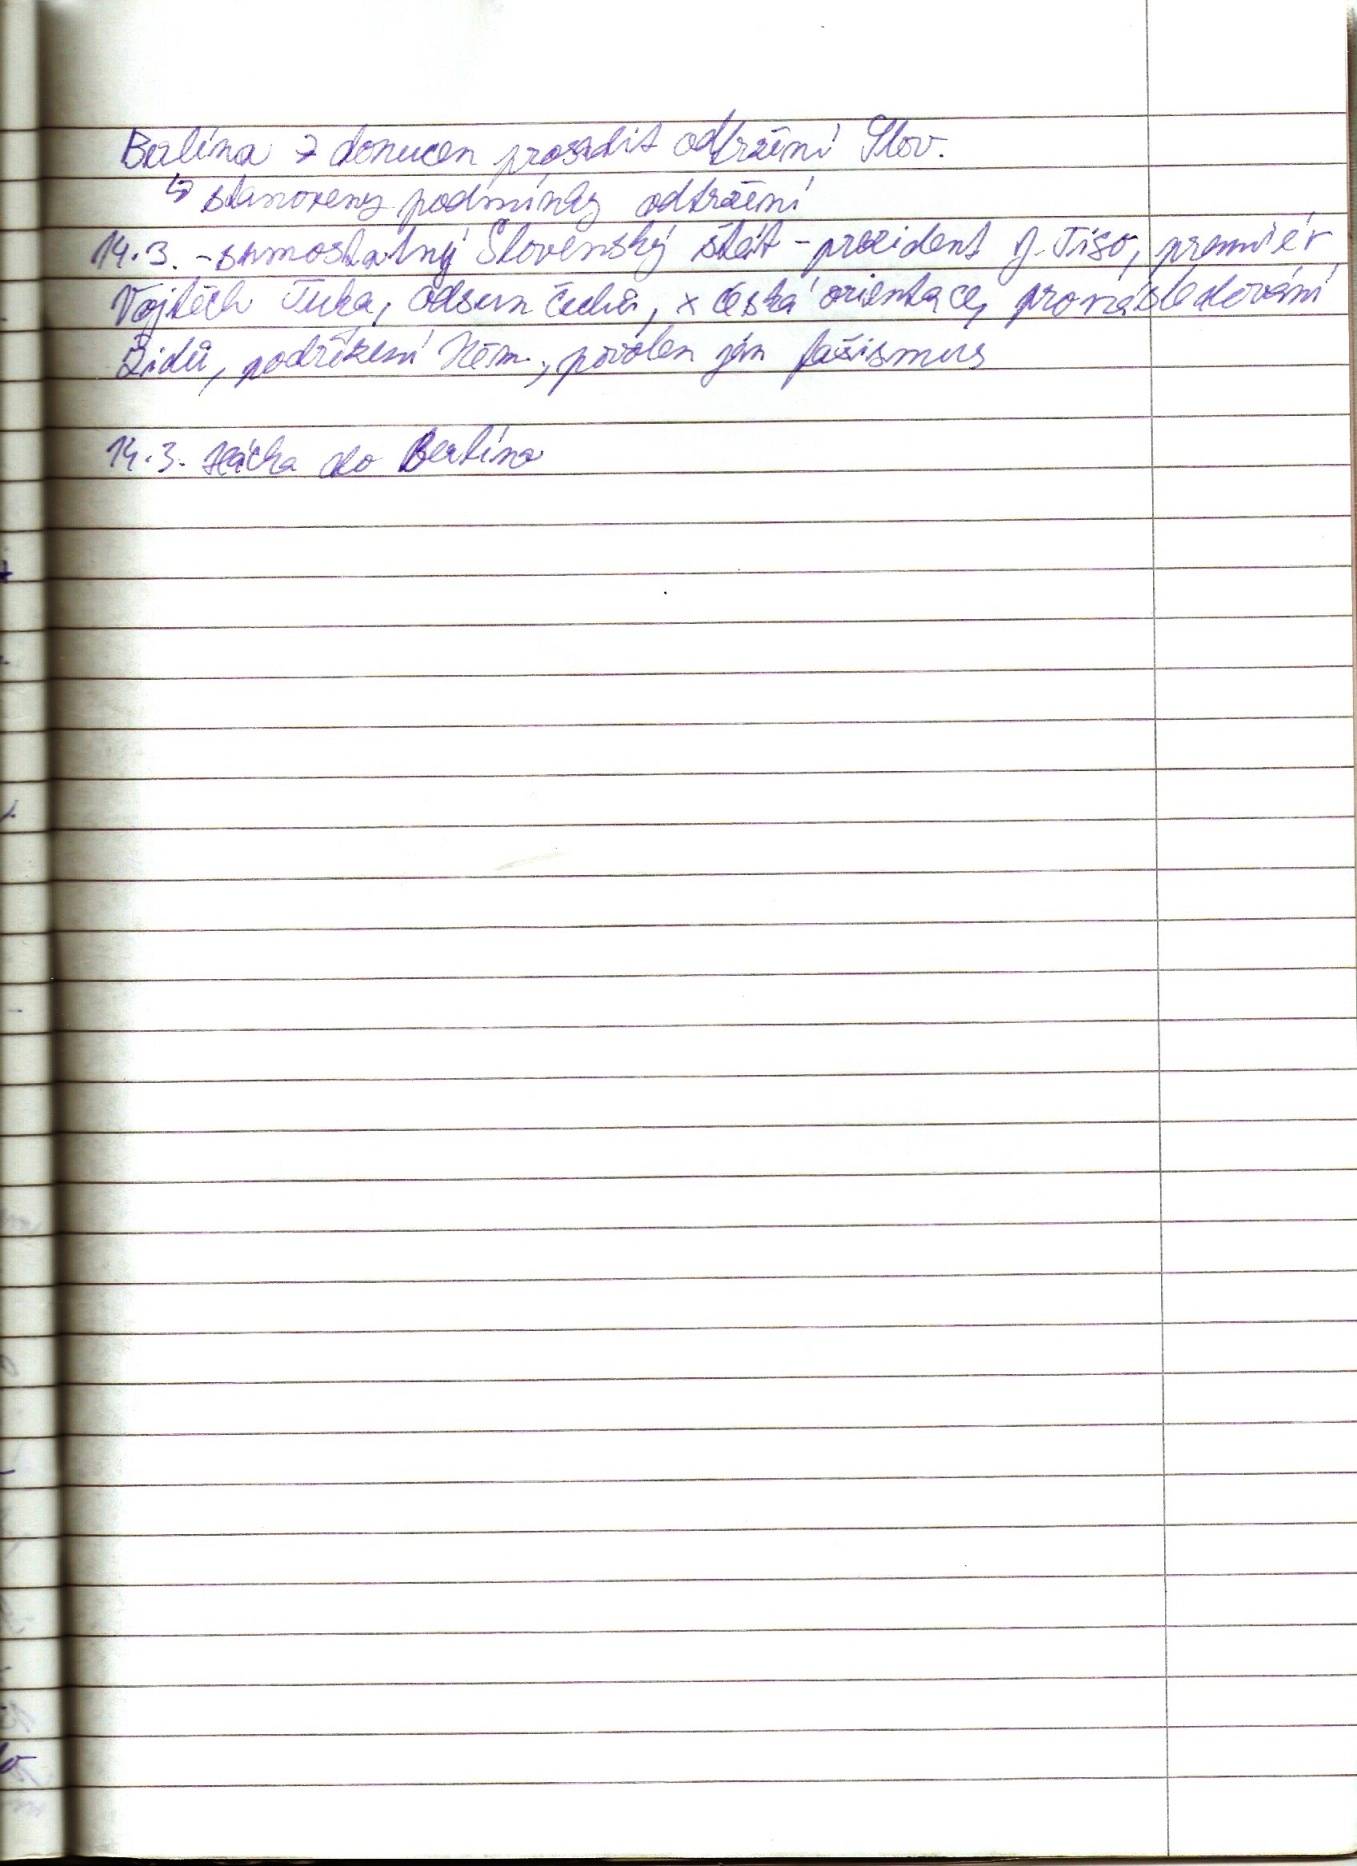 Berlína → donucen prosadit odtržení Slov.
↳ stanoveny podmínky odtržení
14.3. - samostatný Slovenský štát - prezident J. Tiso, premiér
Vojtěch Tuka, odsun Čechů, x česká orientace, pronásledování
Židů, podřízení Něm., povolen jen fašismus
14.3. Hácha do Berlína